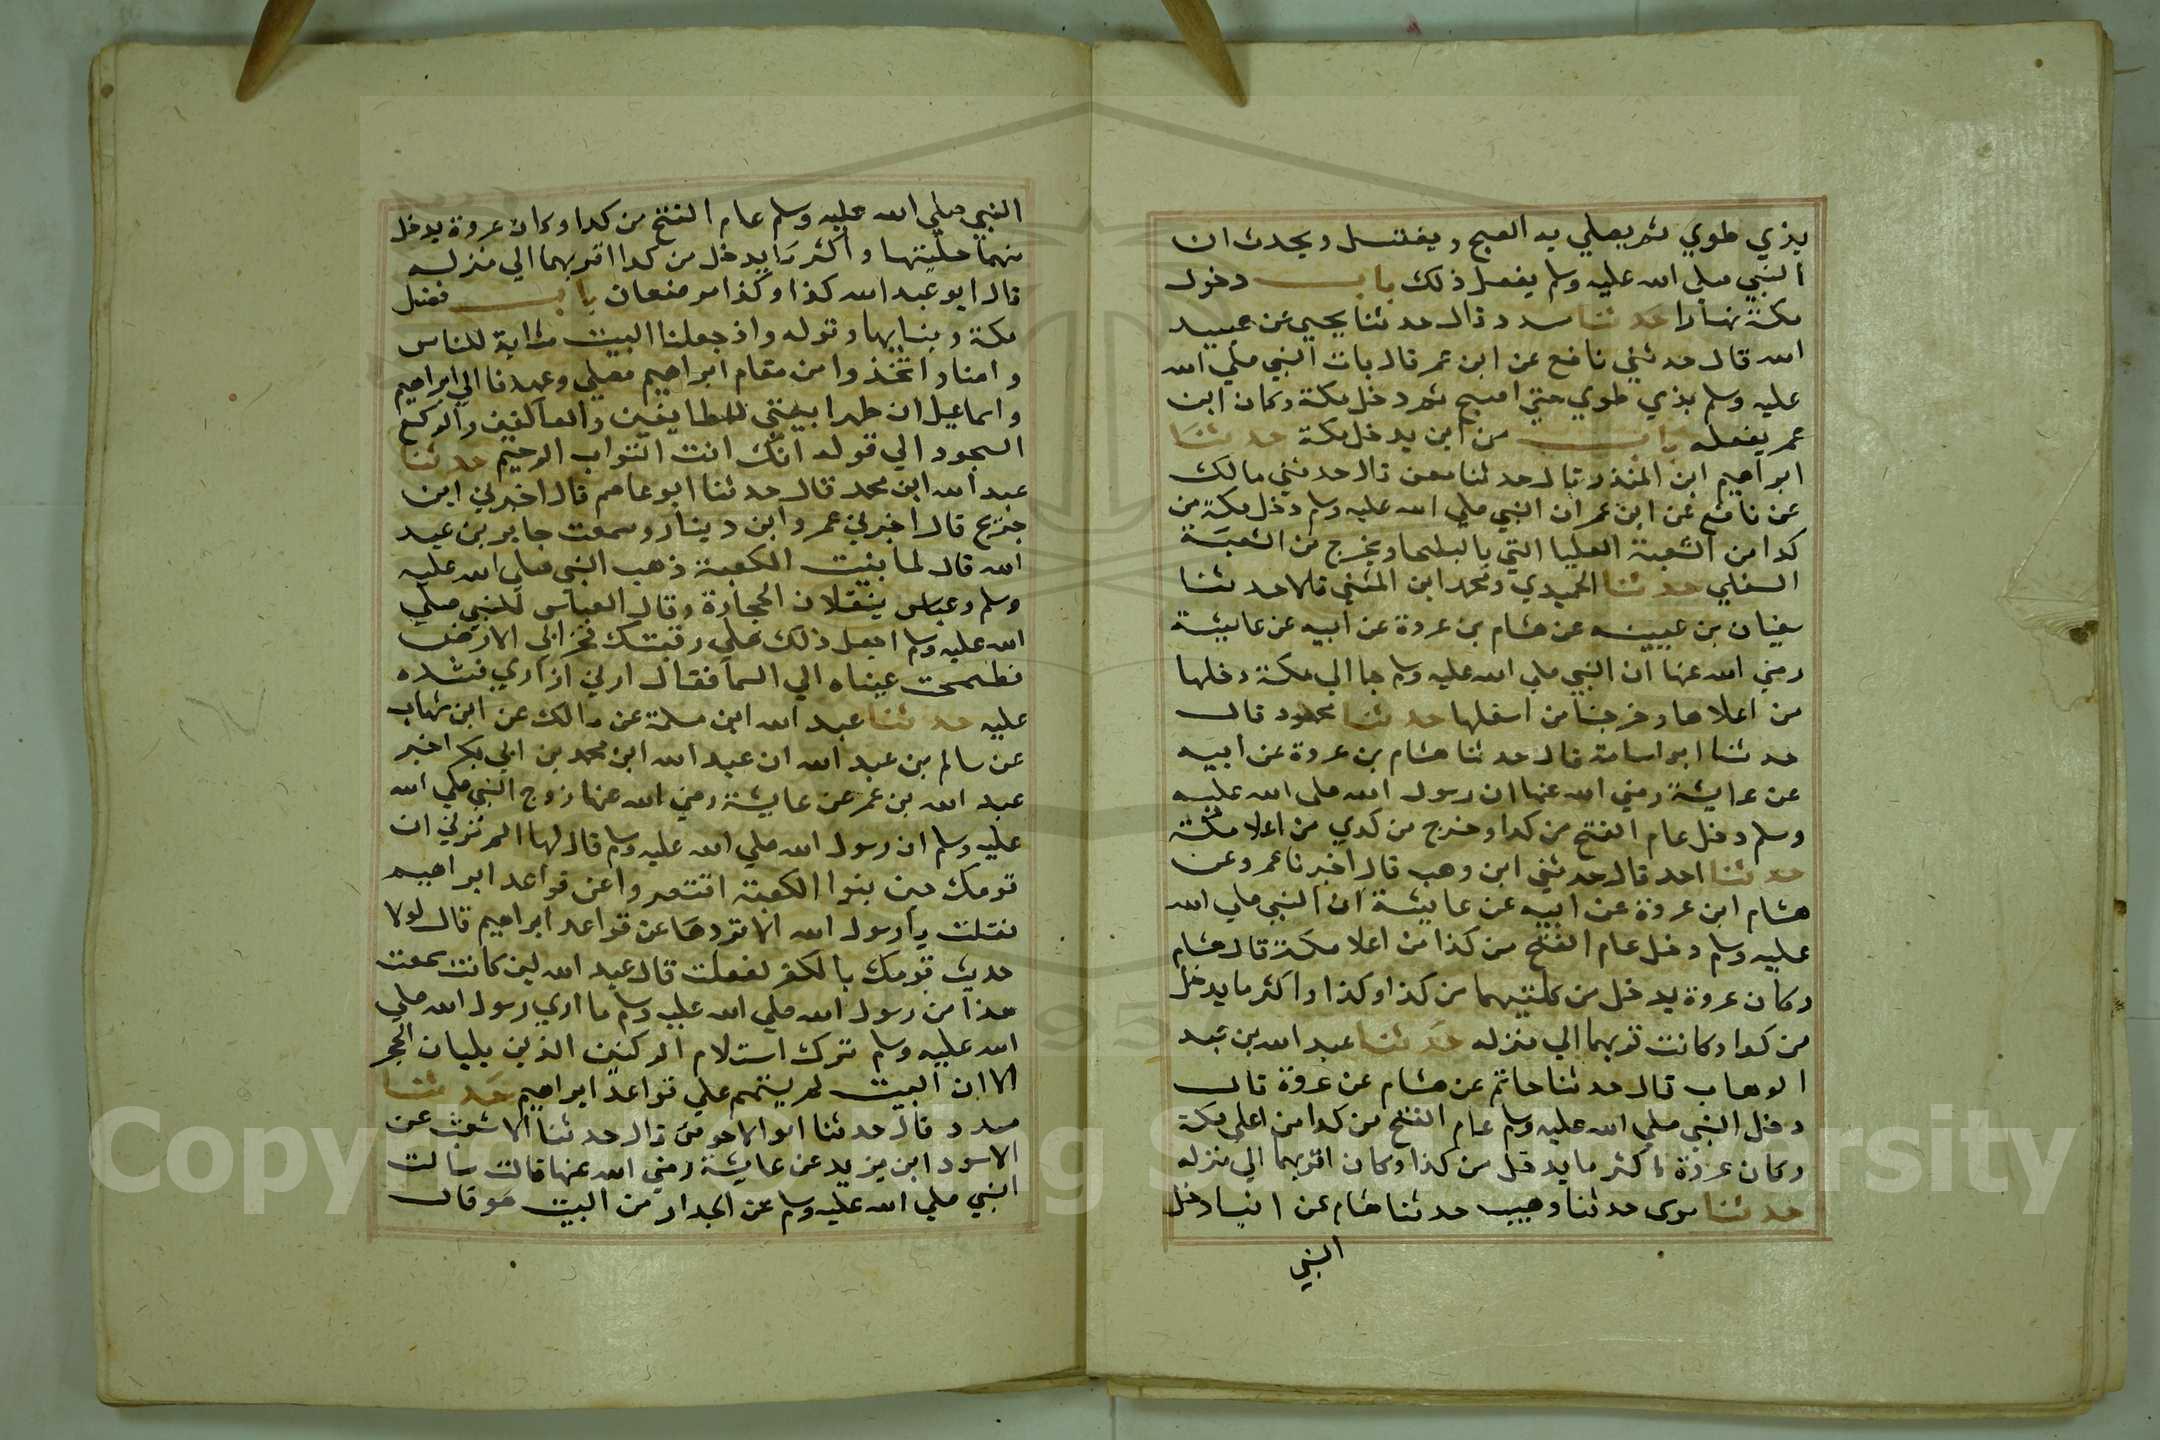 بذي طوي ثم يصلي به الصبح ويغتسل ويحدث ان
النبي صلي الله عليه وسلم يفعل ذلك باب دخول
مكة نهارا حدثنا مسدد قال حدثنا يحيي عن عبيد
الله قال حدثني نافع عن ابن عمر قال بات النبي صلي الله
عليه وسلم بذي طوي حتي اصبح ثم دخل مكة وكان ابن
عمر يفعله باب من اين يدخل مكة حدثنا
ابراهيم ابن المنذر قال حدثنا معن قال حدثني مالك
عن نافع عن ابن عمر ان النبي صلي الله عليه وسلم دخل مكة من
كدا من الشعبة العليا التي بالبطحا ويخرج من الشعبة
السفلي حدثنا الحميدي ومحمد ابن المثني قالا حدثنا
سفيان بن عيينه عن هشام بن عروة عن ابيه عن عايشة
رضي الله عنها ان النبي صلي الله عليه وسلم جا الي مكة دخلها
من اعلاها وخرج من اسفلها حدثنا محمود قال
حدثنا ابو اسامة قال حدثنا هشام بن عروة عن ابيه
عن عايشة رضي الله عنها ان رسول الله صلى الله عليه
وسلم دخل عام الفتح من كدا وخرج من كدي من اعلا مكة
حدثنا احمد قال حدثني ابن وهب قال اخبرنا عمرو عن
هشام ابن عروة عن ابيه عن عايشة ان النبي صلي الله
عليه وسلم دخل عام الفتح من كذا من اعلا مكة قال هشام
وكان عروة يدخل من كلتيهما من كذا وكذا واكثر ما يدخل
من كدا وكانت قربهما الي منزله حدثنا عبد الله بن عبد
الوهاب قال حدثنا حاتم عن هشام عن عروة قال
دخل النبي صلي الله عليه وسلم عام الفتح من كدا من اعلى مكة
وكان عروة اكثر ما يدخل من كذا وكان اقربهما الي منزله
حدثنا موسى حدثنا وهيب حدثنا هشام عن ابيه دخل
النبي
النبي صلي الله عليه وسلم عام الفتح من كدا وكان عروة يدخل
منهما كليتهما واكثر ما يدخل من كدا اقربهما الي منزله
قال ابو عبد الله كذا وكذا موضعان باب فضل
مكة وبنايها وقوله واذ جعلنا البيت مثابة للناس
وامنا واتخذوا من مقام ابراهيم مصلي وعهدنا الي ابراهيم
واسماعيل ان طهرا بيتي للطايفين والعاكفين والركع
السجود الي قوله انك انت التواب الرحيم حدثنا
عبد الله ابن محمد قال حدثنا ابو عاصم قال اخبرني ابن
جريج قال اخبرني عمرو ابن دينار وسمعت جابر بن عبد
الله قال لما بنيت الكعبة ذهب النبي صلي الله عليه
وسلم وعباس ينقلان الحجارة وقال العباس للنبي صلي
الله عليه وسلم اجعل ذلك علي رقبتك فخر الي الارض
فطمحت عيناه الي السما فقال ارني ازاري فشده
عليه حدثنا عبد الله ابن مسلمة عن مالك عن ابن شهاب
عن سالم بن عبد الله ان عبد الله ابن محمد بن ابي بكر اخبر
عبد الله بن عمر عن عايشة رضي الله عنها زوج النبي صلي الله
عليه وسلم ان رسول الله صلي الله عليه وسلم قال لها الم تري ان
قومك حين بنوا الكعبة اقتصروا عن قواعد ابراهيم
فقلت يا رسول الله الا تردها عن قواعد ابراهيم قال لولا
حديث قومك بالكفر لفعلت قال عبد الله لين كانت سمعت
هذا من رسول الله صلي الله عليه وسلم ما اري رسول الله صلي
الله عليه وسلم ترك استلام الركنين الذين يليان الحجر
الا ان البيت لم يتمم علي قواعد ابراهيم حدثنا
مسدد قال حدثنا ابو الاحوص قال حدثنا الاشعث عن
الاسود ابن يزيد عن عايشة رضي الله عنها قالت سالت
النبي صلي الله عليه وسلم عن الجدار من البيت هو قال
Copyright © King Saud University